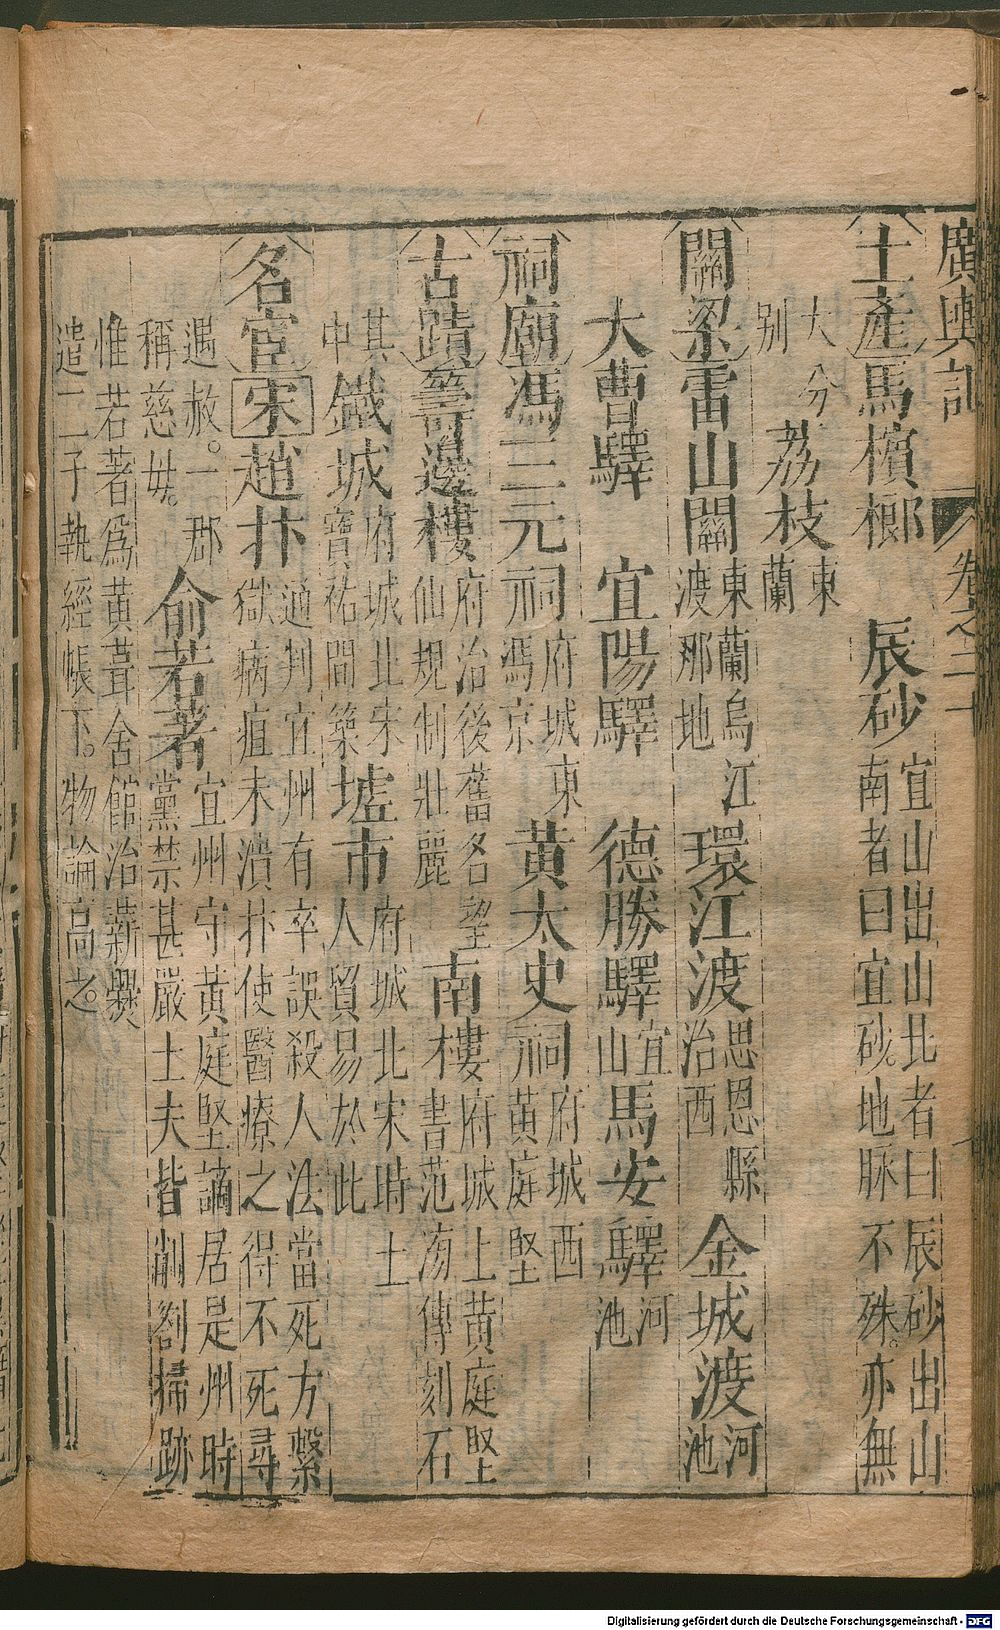 廣輿記 卷之二十
土產馬檳榔 辰砂宜山出山北者曰辰砂出山
南者曰宜砂。地脉不殊。亦無
大分
別荔枝東
蘭
關梁雷山關東蘭烏江
渡那地環江渡思恩縣
治西金城渡河
池
大曹驛 宜陽驛 德勝驛宜
山馬安驛河
池
祠廟馮三元祠府城東
馮京黃太史祠府城西
黃庭堅
古蹟籌邊樓府治後舊名望
仙規制壯麗南樓府城上黃庭堅
書范滂傳刻石
其
中鐵城府城北宋
寶祐間築墟市府城北宋時士
人貿易於此
名宦宋趙抃通判宜州有卒誤殺人法當死方繫
獄病疽未潰抃使醫療之得不死尋
遇赦。一郡
稱慈毋。俞若著宜州守黃庭堅謫居是州時
黨禁甚嚴士夫皆削劄掃跡
惟若著爲黃葺舍館治薪爨
遣二子執經帳下。物論高之。
Digitalisierung gefördert durch die Deutsche Forschungsgemeinschaft - DFG